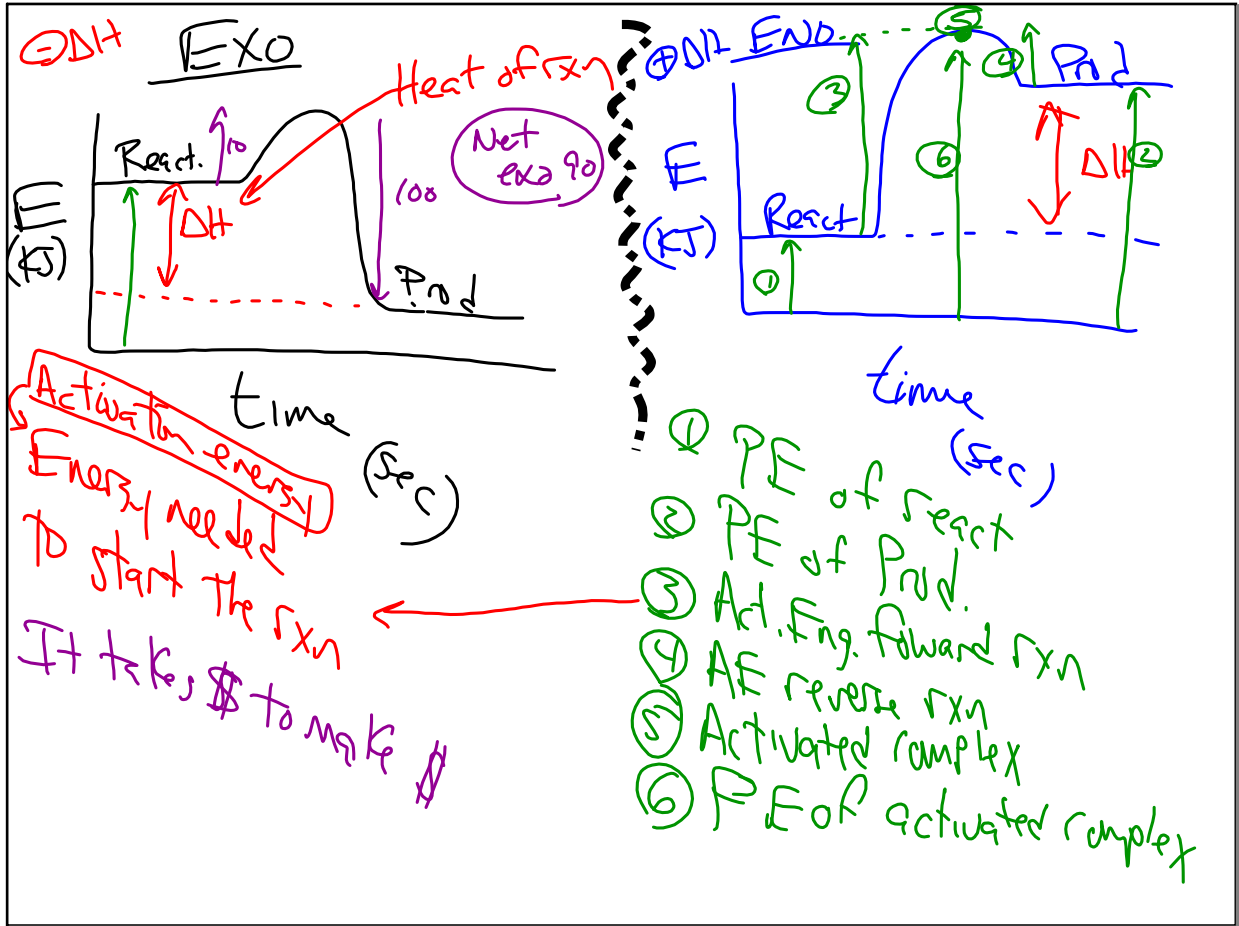 ⊖ΔH
EXO
Heat of rxn
React.
10
ΔH
100
Net
exo 90
E
(KJ)
Prod
time
(sec)
Activation energy
Energy needed
to start the rxn
It takes $ to make $
⊕ΔH ENDO
⑤
④
Prod
③
E
(KJ)
React
⑥
ΔH
②
①
time
(sec)
① PE of react
② PE of Prod.
③ Act. Eng. foward rxn
④ AE reverse rxn
⑤ Activated complex
⑥ PE of activated complex